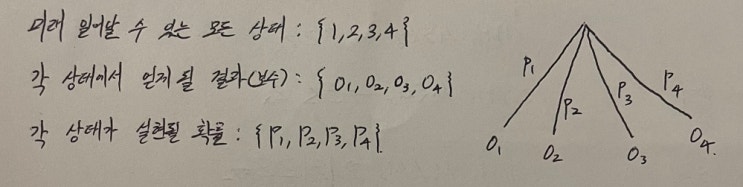 미래 일어날 수 있는 모든 상태 : {1,2,3,4}
각 상태에서 얻게 될 결과(보수) : { O₁, O₂, O₃, O₄}
각 상태가 실현될 확률 : {P₁, P₂, P₃, P₄}
P₁ P₂ P₃ P₄
O₁ O₂ O₃ O₄.